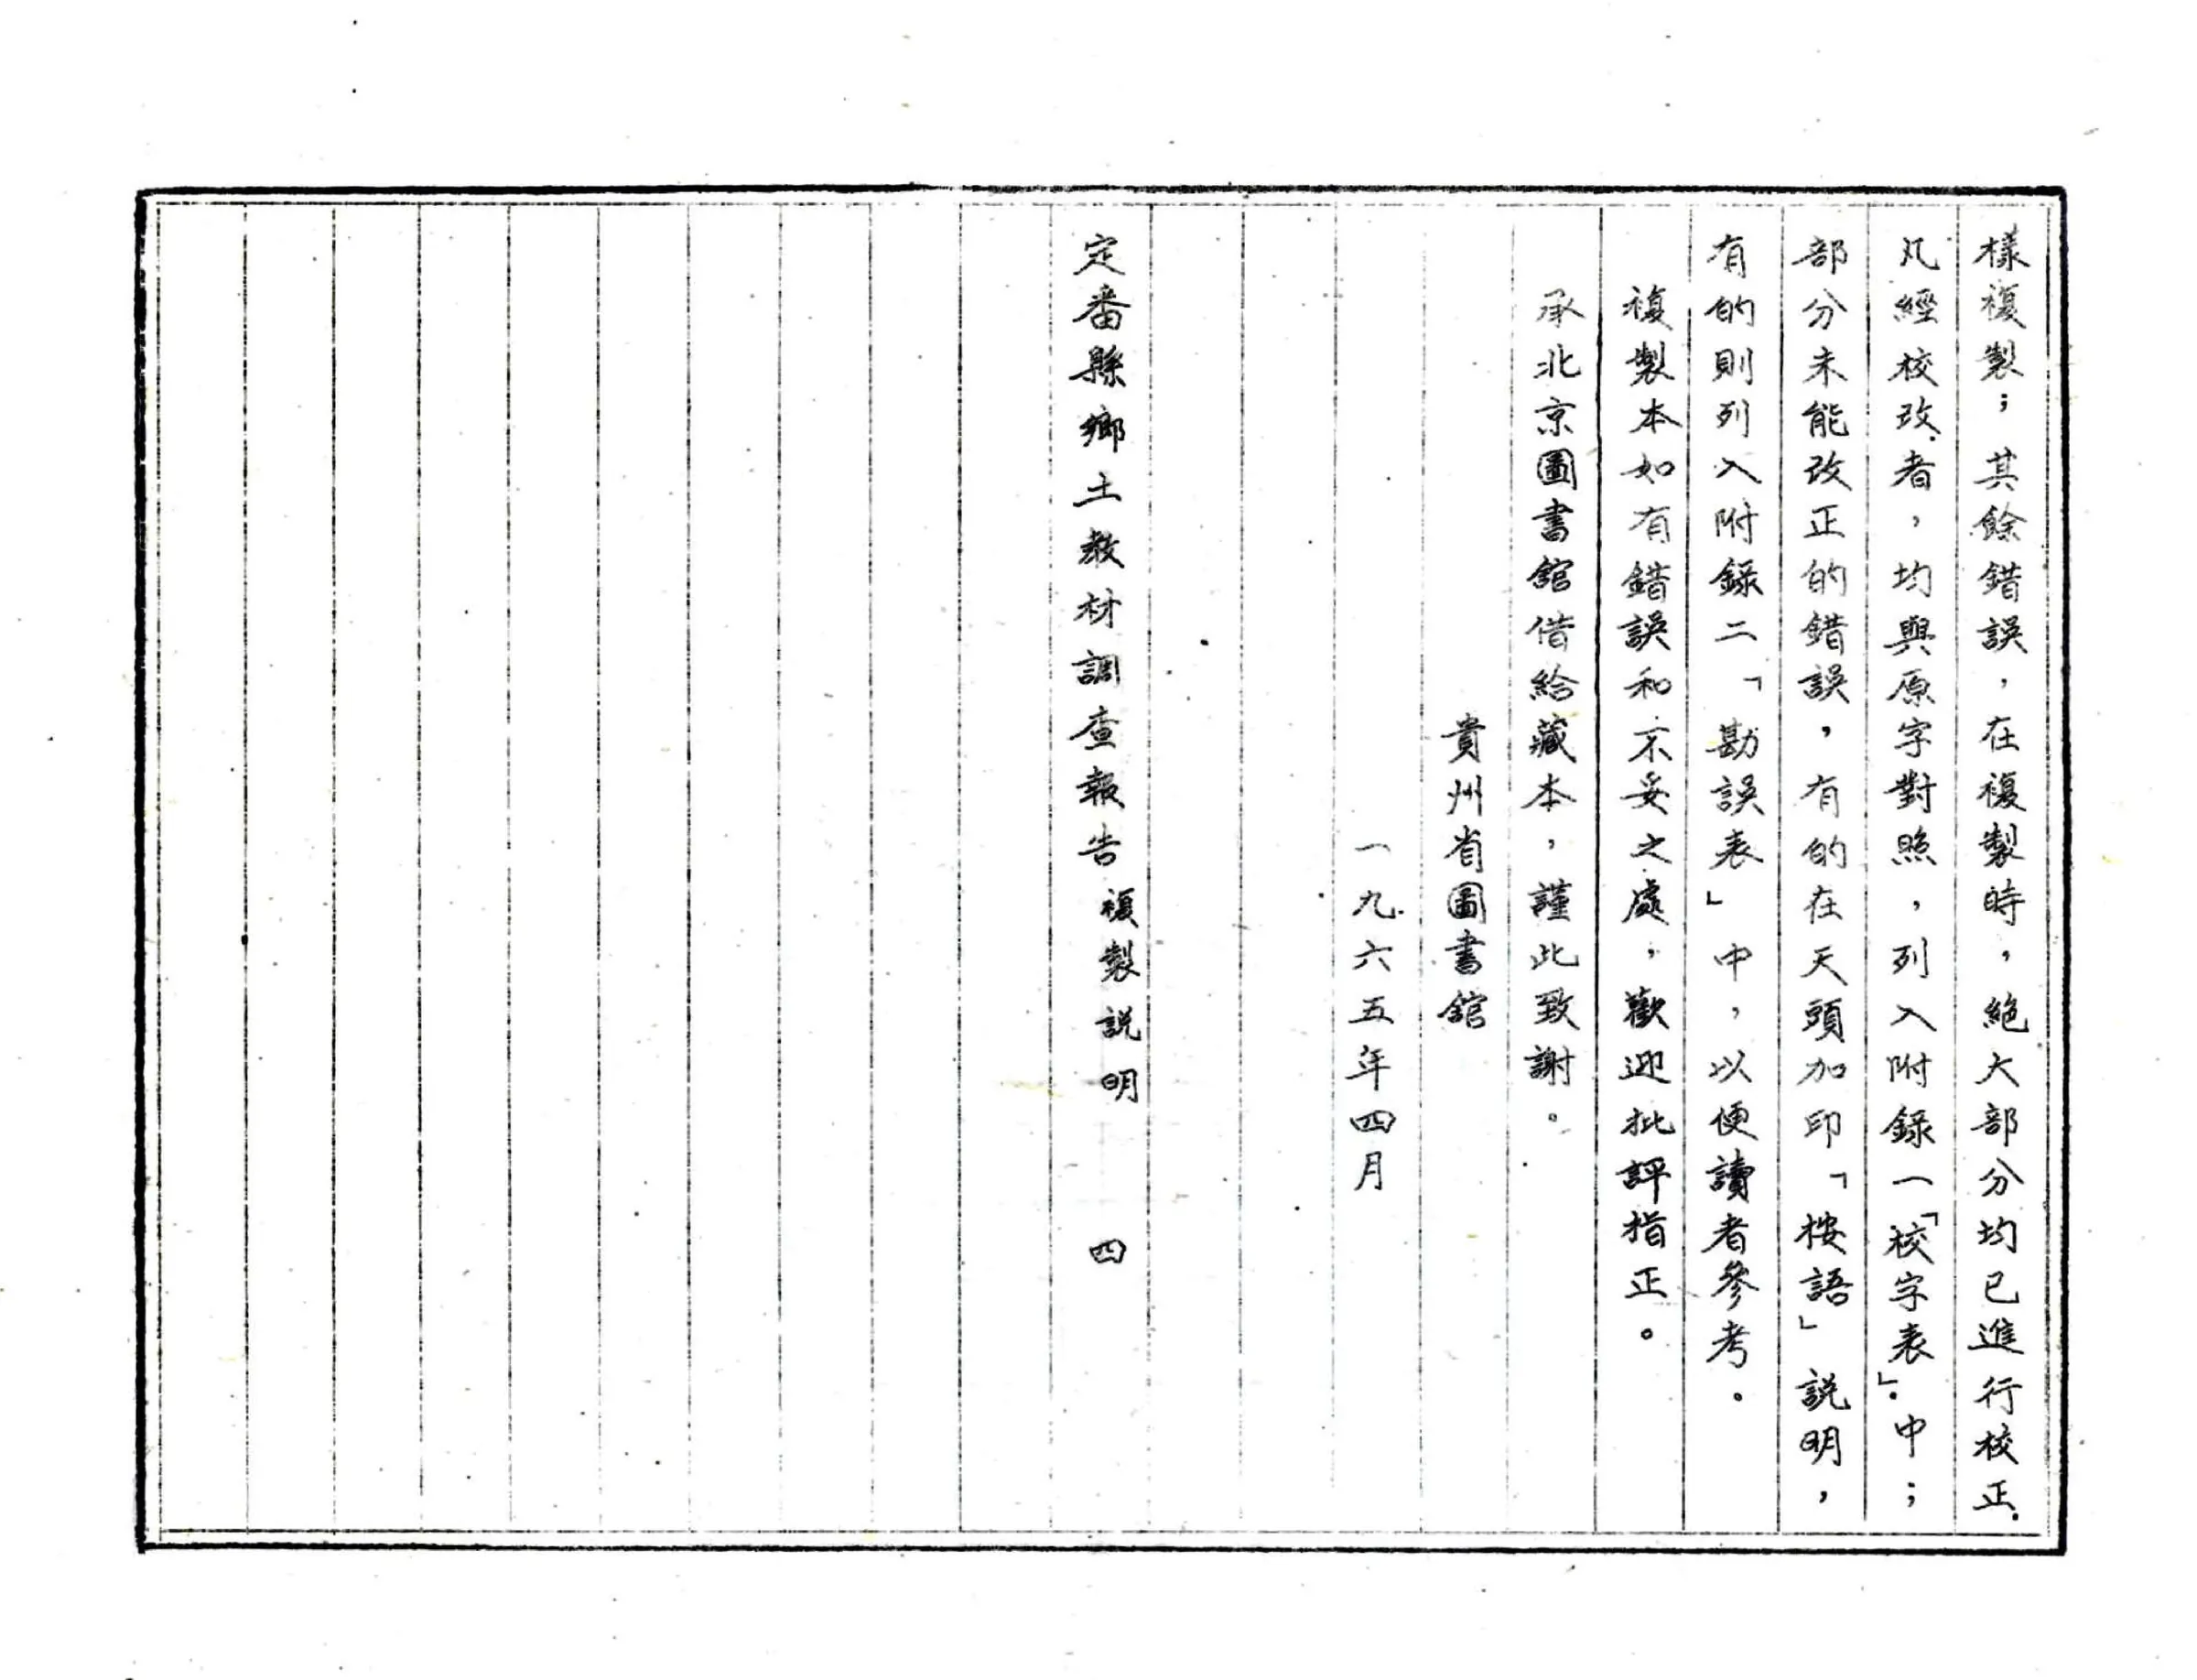 樣複製；其餘錯誤，在複製時，絕大部分均已進行校正.
凡經校改者，均與原字對照，列入附錄一「校字表」中；
部分未能改正的錯誤，有的在天頭加印「按語」說明，
有的則列入附錄二「勘誤表」中，以便讀者參考。
複製本如有錯誤和不妥之處，歡迎批評指正。
承北京圖書館借給藏本，謹此致謝。
貴州省圖書館
一九六五年四月
定番縣鄉土教材調查報告 複製說明 四